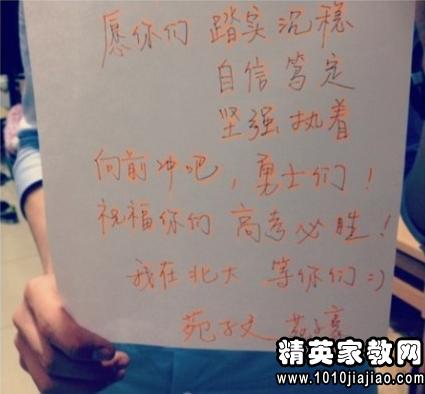 愿你们 踏实沉稳
自信笃定
坚强执着
向前冲吧，勇士们！
祝福你们 高考必胜！
我在北大 等你们 :)
苑子文 苑子豪
精英家教网
http://www.1010jiajiao.com/